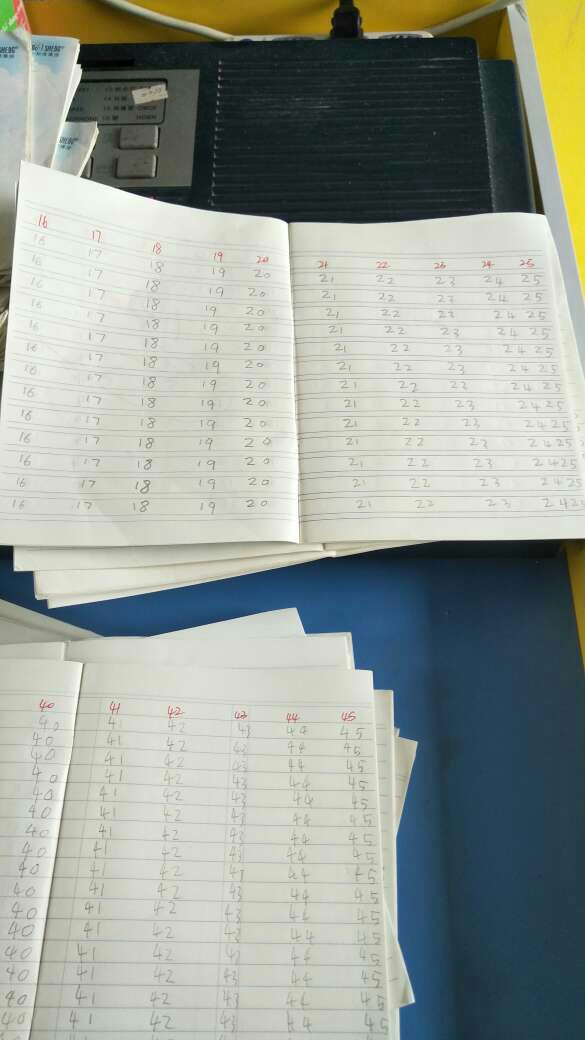 16 17 18 19 20
16 17 18 19 20
16 17 18 19 20
16 17 18 19 20
16 17 18 19 20
16 17 18 19 20
16 17 18 19 20
16 17 18 19 20
16 17 18 19 20
16 17 18 19 20
16 17 18 19 20
16 17 18 19 20
16 17 18 19 20
16 17 18 19 20
21 22 23 24 25
21 22 23 24 25
21 22 23 24 25
21 22 23 24 25
21 22 23 24 25
21 22 23 24 25
21 22 23 24 25
21 22 23 24 25
21 22 23 24 25
21 22 23 24 25
21 22 23 24 25
21 22 23 24 25
21 22 23 24 25
21 22 23 24 2
40 41 42 43 44 45
40 41 42 43 44 45
40 41 42 43 44 45
40 41 42 43 44 45
40 41 42 43 44 45
40 41 42 43 44 45
40 41 42 43 44 45
40 41 42 43 44 45
40 41 42 43 44 45
40 41 42 43 44 45
40 41 42 43 44 45
40 41 42 43 44 45
40 41 42 43 44 45
40 41 42 43 44 45
40 41 42 43 44 45
40 41 42 43 44 45
40 41 42 43 44 45